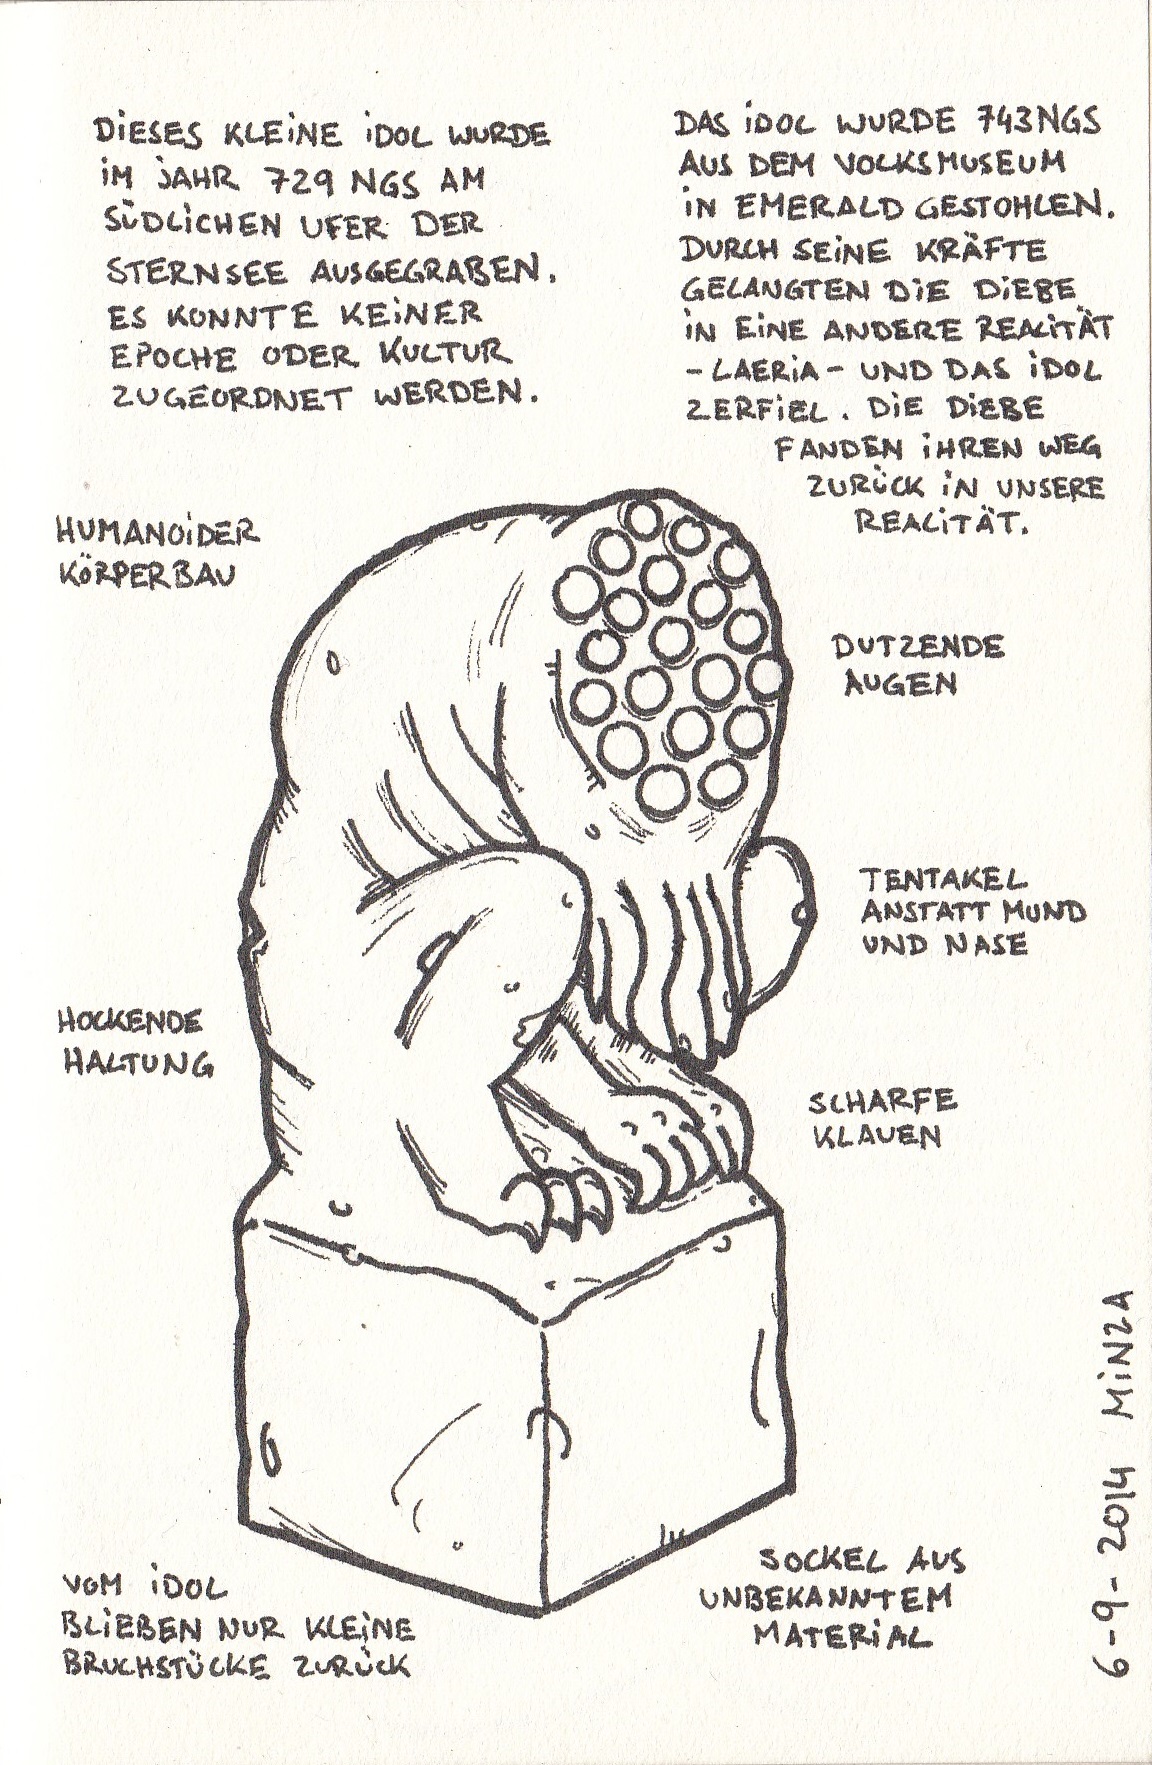 DIESES KLEINE IDOL WURDE
IM JAHR 729 NGS AM
SÜDLICHEN UFER DER
STERNSEE AUSGEGRABEN.
ES KONNTE KEINER
EPOCHE ODER KULTUR
ZUGEORDNET WERDEN.
DAS IDOL WURDE 743 NGS
AUS DEM VOLKSMUSEUM
IN EMERALD GESTOHLEN.
DURCH SEINE KRÄFTE
GELANGTEN DIE DIEBE
IN EINE ANDERE REALITÄT
- LAERIA - UND DAS IDOL
ZERFIEL. DIE DIEBE
FANDEN IHREN WEG
ZURÜCK IN UNSERE
REALITÄT.
HUMANOIDER
KÖRPERBAU
DUTZENDE
AUGEN
TENTAKEL
ANSTATT MUND
UND NASE
HOCKENDE
HALTUNG
SCHARFE
KLAUEN
VOM IDOL
BLIEBEN NUR KLEINE
BRUCHSTÜCKE ZURÜCK
SOCKEL AUS
UNBEKANNTEM
MATERIAL
6-9-2014 MINZA